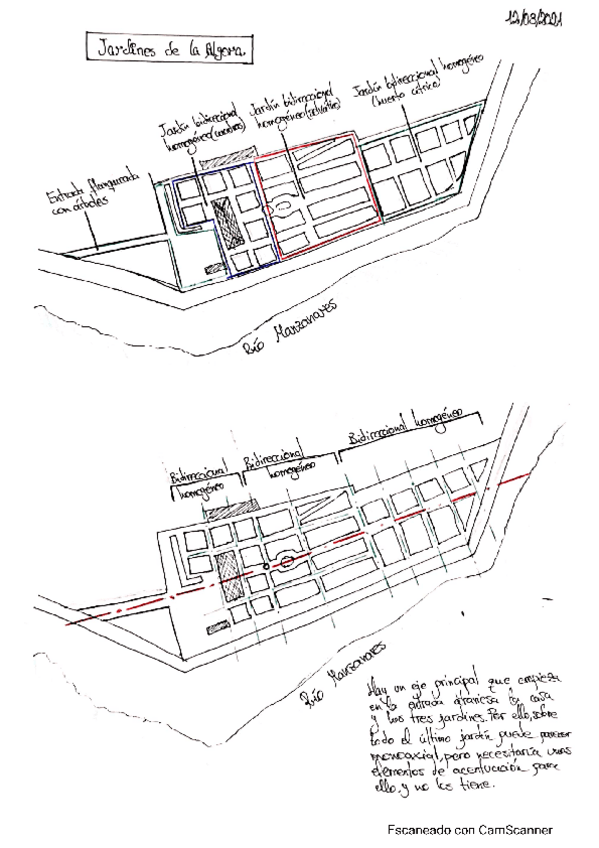 12/03/2021
Jardines de la Algora.
Jardín bidireccional
homogéneo (cuadros)
Jardín bidireccional
homogéneo
Jardín bidireccional homogéneo
(huerto cítrico)
Entrada flanqueada
con árboles
Río Manzanares
Bidireccional
homogéneo
Bidireccional
homogéneo
Bidireccional homogéneo
Río Manzanares
Hay un eje principal que empieza
en la entrada atraviesa la casa
y los tres jardines. Por ello, sobre
todo el último jardín puede parecer
monoaxial, pero necesitaría unos
elementos de acentuación para
ello, y no los tiene.
Escaneado con CamScanner